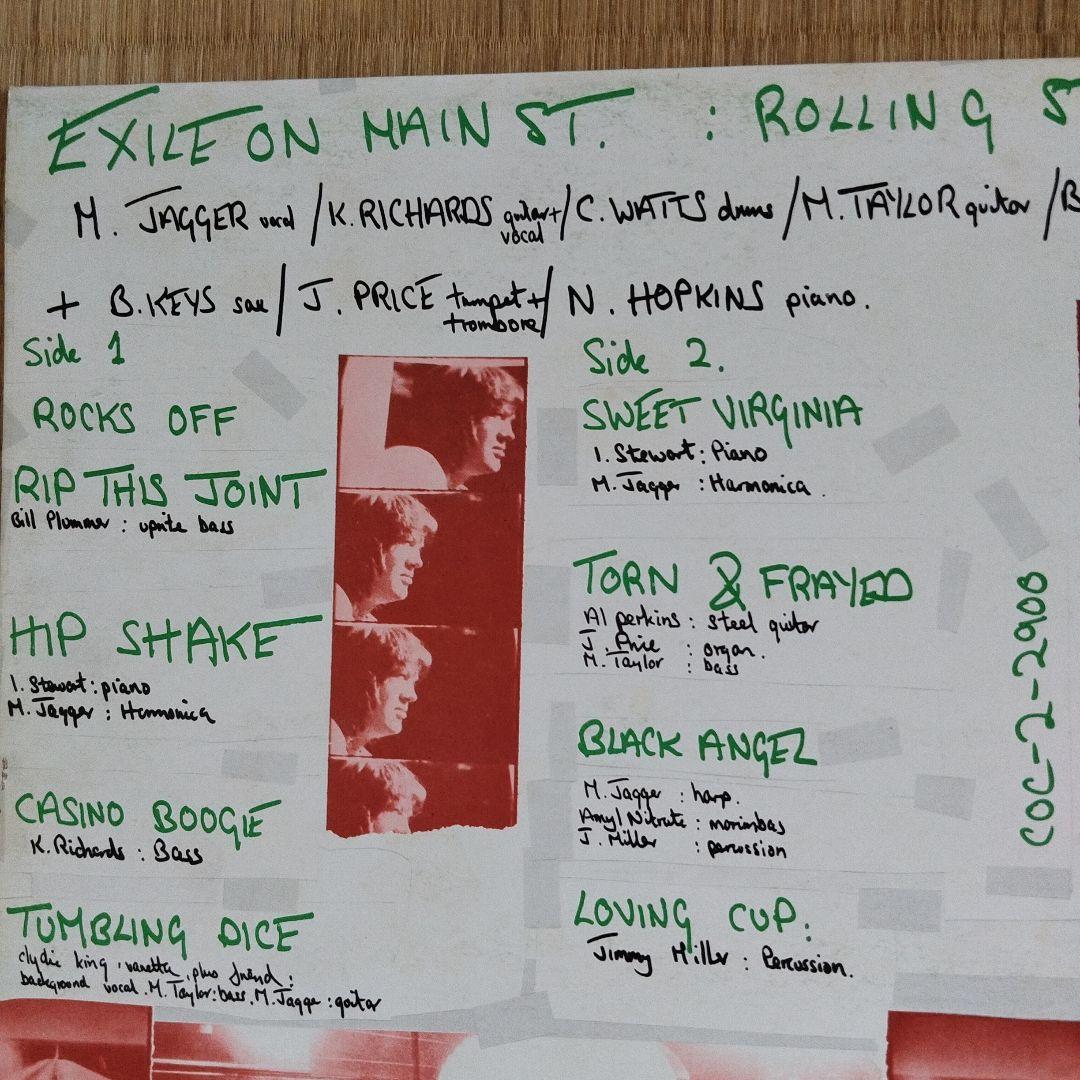 EXILE ON MAIN ST. : ROLLING S
M. JAGGER vocal / K. RICHARDS guitar + vocal / C. WATTS drums / M. TAYLOR guitar / B
+ B. KEYS sax / J. PRICE trumpet + trombone / N. HOPKINS piano.
Side 1
ROCKS OFF
RIP THIS JOINT
Bill Plummer : uprite bass
HIP SHAKE
I. Stewart : piano
M. Jagger : Harmonica
CASINO BOOGIE
K. Richards : Bass
TUMBLING DICE
clydie king, vanetta, plus friend :
background vocal. M. Taylor: bass. M. Jagger : guitar
Side 2.
SWEET VIRGINIA
I. Stewart : Piano
M. Jagger : Harmonica.
TORN & FRAYED
Al perkins : steel guitar
J. Price : organ.
M. Taylor : bass
BLACK ANGEL
M. Jagger : harp.
Amyl Nitrate : marimbas
J. Miller : percussion
LOVING CUP:
Jimmy Miller : Percussion.
COC-2-2900